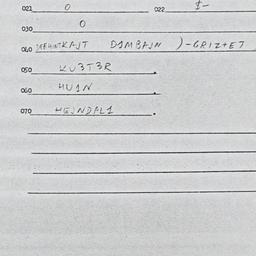 021 0 022 1-
030 0
060 DAMBAJN )-GRIZ+E7
050 KU3T3R
060 HU1N
070 HEJNDAL1